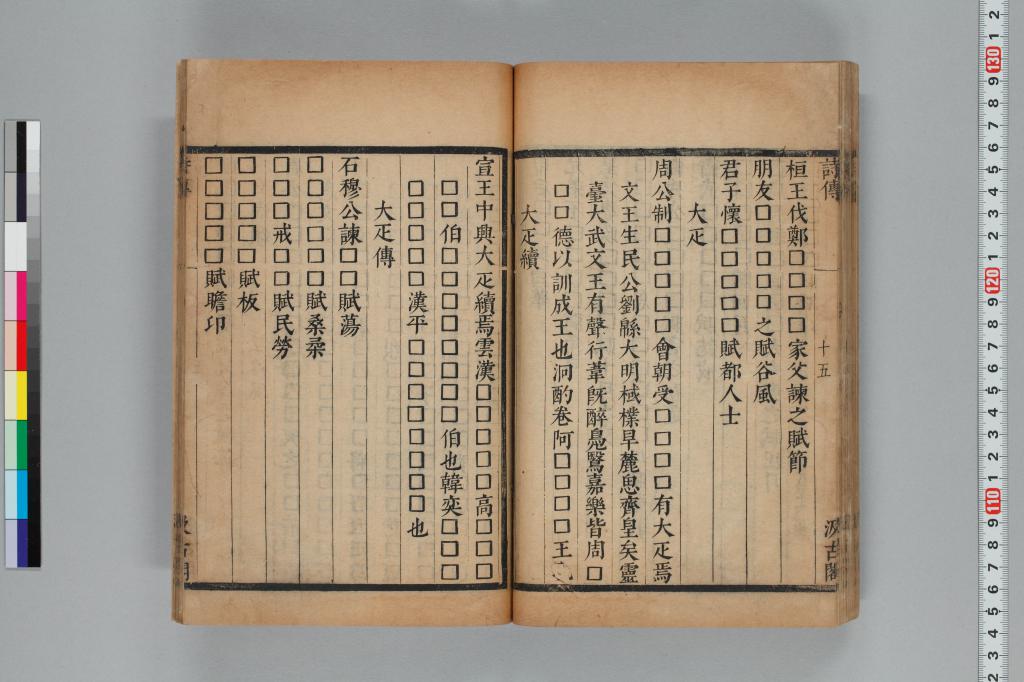 詩傳
十五
汲古閣
桓王伐鄭□□□□家父諫之賦節
朋友□□□□□之賦谷風
君子懷□□□□□賦都人士
大疋
周公制□□□□□會朝受□□□□有大疋焉
文王生民公劉緜大明棫樸旱麓思齊皇矣靈
臺大武文王有聲行葦旣醉鳧鷖嘉樂皆周□
□□德以訓成王也泂酌卷阿□□□□□王
大疋續
宣王中興大疋續焉雲漢□□□□□高□□□
□□伯□□□□□□□□伯也韓奕□□□
□□□□□漢平□□□□□□□□也
大疋傳
石穆公諫□□賦蕩
□□□□□□賦桑柔
□□□戒□□賦民勞
□□□□□賦板
□□□□□賦瞻卬